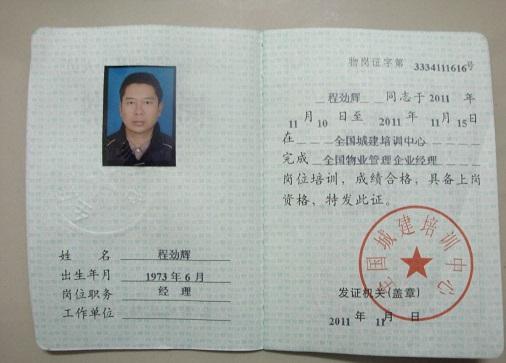 姓 名 程劲辉
出生年月 1973 年 6 月
岗位职务 经 理
工作单位
物岗证字第 3334111616号
程劲辉 同志于 2011 年
11 月 10 日至 2011 年 11 月 15 日
在 全国城建培训中心
完成 全国物业管理企业经理
岗位培训，成绩合格，具备上岗
资格，特发此证。
全国城建培训中心
发证机关(盖章)
2011 年 11 月 日